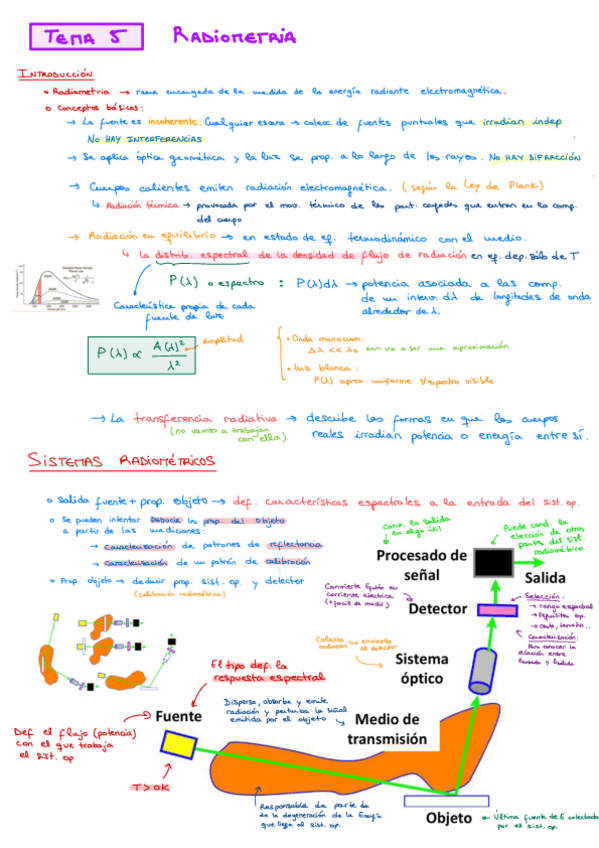 TEMA 5 RADIOMETRIA
INTRODUCCIÓN
• Radiometria → rama encargada de la medida de la energía radiante electromagnética.
• Conceptos básicos:
→ La fuente es incoherente. Cualquier escena → colecc. de fuentes puntuales que irradian indep
NO HAY INTERFERENCIAS
→ Se aplica óptica geométrica y la luz se prop. a lo largo de los rayos. NO HAY DIFRACCIÓN
→ Cuerpos calientes emiten radiación electromagnética. (según la Ley de Plank)
↳ Radiación térmica → provocada por el mov. térmico de las part. cargadas que entran en la comp.
del cuerpo
→ Radiación en equilibrio → en estado de eq. termodinámico con el medio.
↳ la distrib. espectral de la densidad de flujo de radiación en eq. dep. sólo de T
P(λ) o espectro : P(λ)dλ → potencia asociada a las comp.
de un interv. dλ de longitudes de onda
alrededor de λ.
Característica propia de cada
fuente de luz
P(λ) ∝ A(λ)² / λ²
amplitud
• Onda monocrom:
Δλ << λ₀ aun va a ser una aproximación
• luz blanca:
P(λ) aprox. uniforme ∀ espectro visible
→ La transferencia radiativa → describe las formas en que los cuerpos
(no vamos a trabajar
con ella)
reales irradian potencia o energía entre sí.
SISTEMAS RADIOMÉTRICOS
• Salida fuente + prop. objeto → def. características espectrales a la entrada del sist. op.
• Se pueden intentar deducir las prop. del objeto
a partir de las mediciones:
→ Caracterización de patrones de reflectancia
→ Caracterización de un patrón de calibración
• Prop. objeto → deducir prop. sist. op. y detector
(calibración radiométrica)
Conv. la salida
en algo útil
Puede cond. la
elección de otra
parte del sist.
radiométrico
Procesado de
señal
Salida
Convierte en
corriente eléctrica
(+ facil de medir)
Detector
Selección:
→ rango espectral
→ requisitos op.
→ coste, tamaño...
Caracterización:
Para conocer la
relación entre
entrada y salida
Colecta radiación
enviarla al detector
Sistema
óptico
El tipo def. la
respuesta espectral
Dispersa, absorbe y emite
radiación y perturba la señal
emitida por el objeto
Fuente
Medio de
transmisión
Def el flujo (potencia)
con el que trabaja
el sist. op
T > 0K
Responsable de parte de
de la degeneración de la Energía
que llega al sist. op.
Objeto
Última fuente de E colectada
por el sist. op.